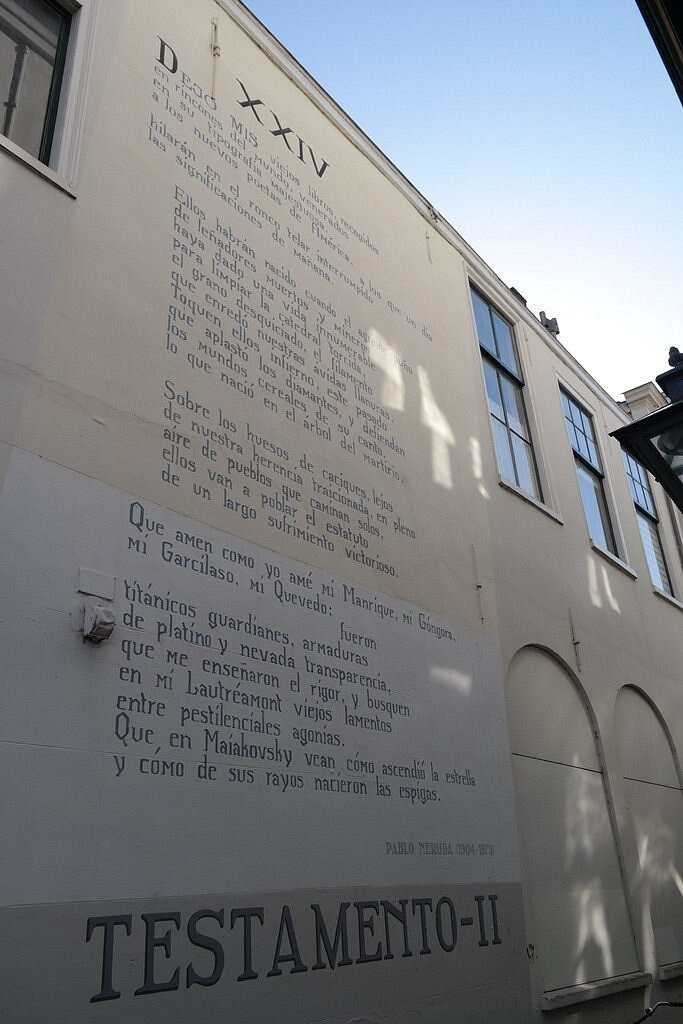 XXIV
DEJO MIS viejos libros, recogidos
en rincones del mundo, venerados
en su tipografía majestuosa,
a los nuevos poetas de América,
a los que un día
hilarán en el ronco telar interrumpido
las significaciones de mañana.
Ellos habrán nacido cuando el agreste puño
de leñadores muertos y mineros
haya dado una vida innumerable
para limpiar la catedral torcida,
el grano desquiciado, el filamento
que enredó nuestras ávidas llanuras.
Toquen ellos infierno, este pasado
que aplastó los diamantes, y defiendan
los mundos cereales de su canto,
lo que nació en el árbol del martirio.
Sobre los huesos de caciques, lejos
de nuestra herencia traicionada, en pleno
aire de pueblos que caminan solos,
ellos van a poblar el estatuto
de un largo sufrimiento victorioso.
Que amen como yo amé mi Manrique, mi Góngora,
mi Garcilaso, mi Quevedo:
fueron
titánicos guardianes, armaduras
de platino y nevada transparencia,
que me enseñaron el rigor, y busquen
en mi Lautréamont viejos lamentos
entre pestilenciales agonías.
Que, en Maiakovsky vean cómo ascendió la estrella
y cómo de sus rayos nacieron las espigas.
PABLO NERUDA (1904-1973)
TESTAMENTO-II